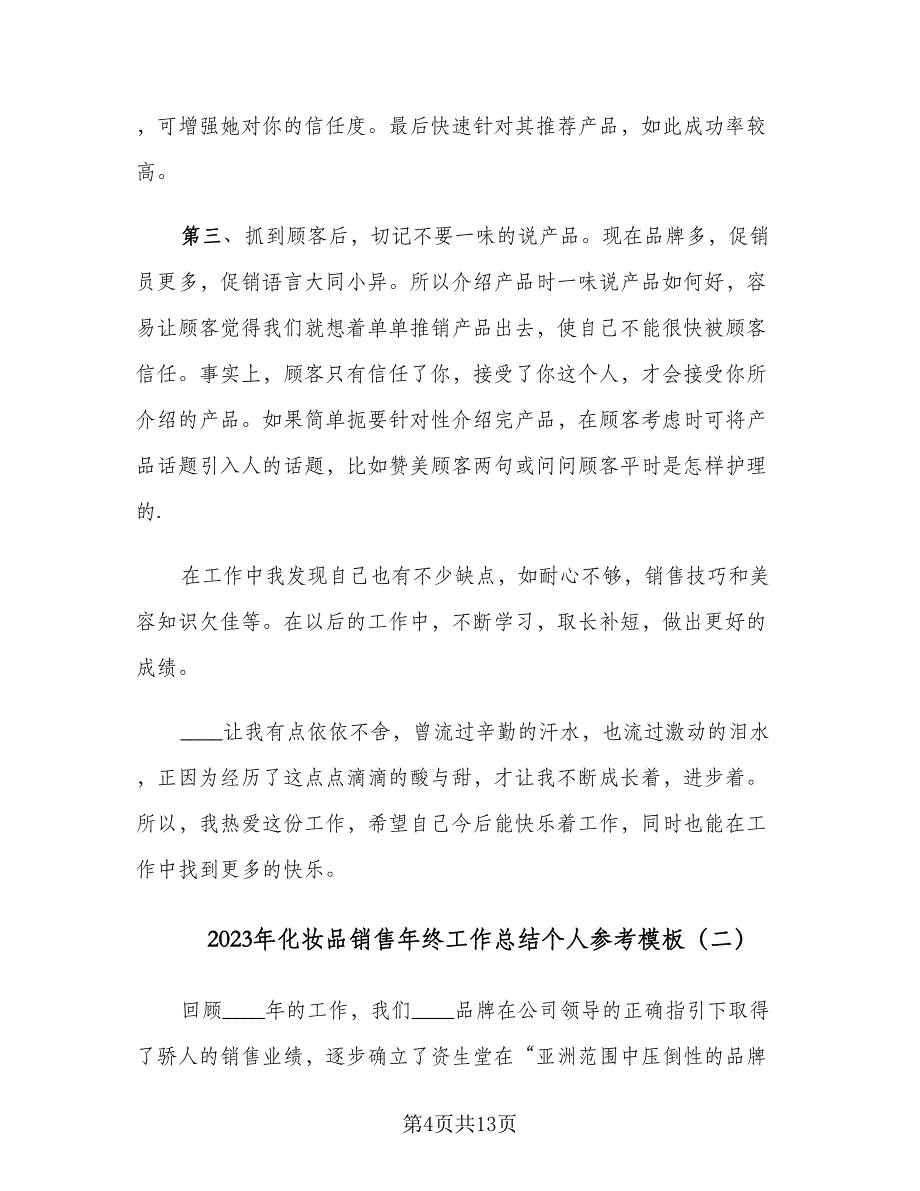 ，可增强她对你的信任度。最后快速针对其推荐产品，如此成功率较
高。
第三、抓到顾客后，切记不要一味的说产品。现在品牌多，促销
员更多，促销语言大同小异。所以介绍产品时一味说产品如何好，容
易让顾客觉得我们就想着单单推销产品出去，使自己不能很快被顾客
信任。事实上，顾客只有信任了你，接受了你这个人，才会接受你所
介绍的产品。如果简单扼要针对性介绍完产品，在顾客考虑时可将产
品话题引入人的话题，比如赞美顾客两句或问问顾客平时是怎样护理
的.
在工作中我发现自己也有不少缺点，如耐心不够，销售技巧和美
容知识欠佳等。在以后的工作中，不断学习，取长补短，做出更好的
成绩。
____让我有点依依不舍，曾流过辛勤的汗水，也流过激动的泪水
，正因为经历了这点点滴滴的酸与甜，才让我不断成长着，进步着。
所以，我热爱这份工作，希望自己今后能快乐着工作，同时也能在工
作中找到更多的快乐。
2023年化妆品销售年终工作总结个人参考模板（二）
回顾____年的工作，我们____品牌在公司领导的正确指引下取得
了骄人的销售业绩，逐步确立了资生堂在“亚洲范围中压倒性的品牌
第4页共13页